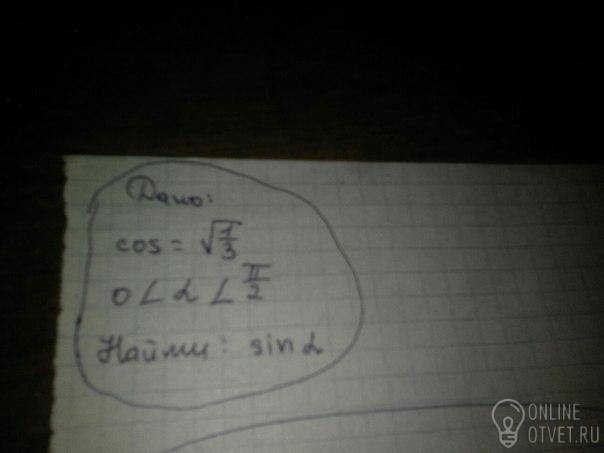 Дано:
cos = √1/3
0 < α < π/2
Найти: sin α
ONLINE
OTVET.RU